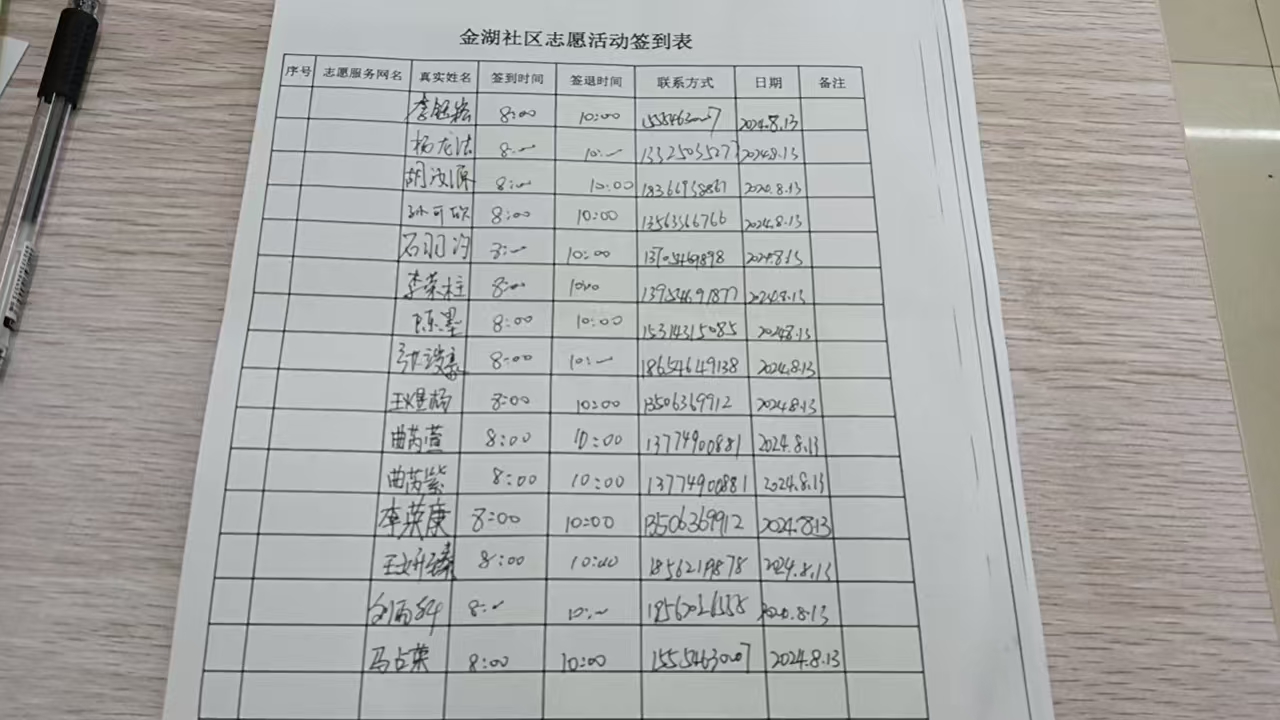 金湖社区志愿活动签到表
序号 志愿服务网名 真实姓名 签到时间 签退时间 联系方式 日期 备注
李钰嵩 8:00 10:00 15554630007 2024.8.13
杨龙洁 8:00 10:00 13325035077 2024.8.13
胡汝源 8:00 10:00 18366938867 2024.8.13
孙可欣 8:00 10:00 13563366766 2024.8.13
石羽汐 8:00 10:00 13705469898 2024.8.13
李荣柱 8:00 10:00 13954691877 2024.8.13
陈墨 8:00 10:00 15314315085 2024.8.13
张竣豪 8:00 10:00 18654649138 2024.8.13
王煜杨 8:00 10:00 13506369912 2024.8.13
曲芮萱 8:00 10:00 13774900881 2024.8.13
曲芮紫 8:00 10:00 13774900881 2024.8.13
李英康 8:00 10:00 13506369912 2024.8.13
8:00 10:00 18562119878 2024.8.13
8:00 10:00 2024.8.13
马占荣 8:00 10:00 15554630007 2024.8.13